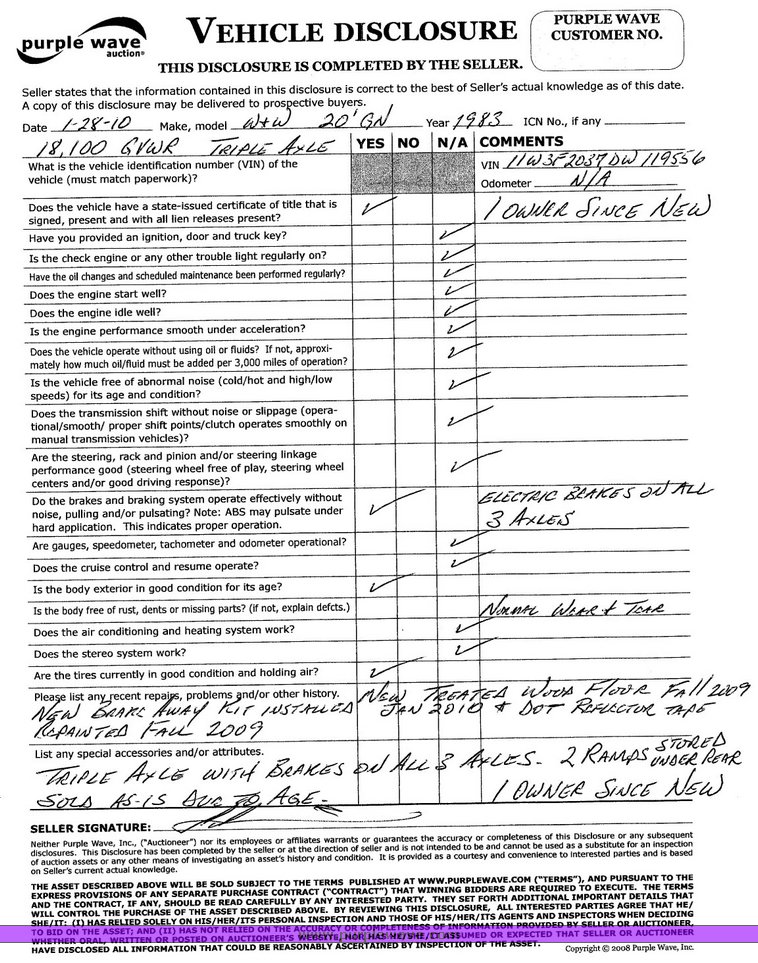 purple wave
auction®
VEHICLE DISCLOSURE
PURPLE WAVE
CUSTOMER NO.
THIS DISCLOSURE IS COMPLETED BY THE SELLER.
Seller states that the information contained in this disclosure is correct to the best of Seller's actual knowledge as of this date.
A copy of this disclosure may be delivered to prospective buyers.
Date 1-28-10 Make, model W+W 20' GN Year 1983 ICN No., if any
18,100 GVWR TRIPLE AXLE YES NO N/A COMMENTS
What is the vehicle identification number (VIN) of the
vehicle (must match paperwork)?
VIN 11W3F2037DW119556
Odometer N/A
Does the vehicle have a state-issued certificate of title that is
signed, present and with all lien releases present?
1 OWNER SINCE NEW
Have you provided an ignition, door and truck key?
Is the check engine or any other trouble light regularly on?
Have the oil changes and scheduled maintenance been performed regularly?
Does the engine start well?
Does the engine idle well?
Is the engine performance smooth under acceleration?
Does the vehicle operate without using oil or fluids? If not, approxi-
mately how much oil/fluid must be added per 3,000 miles of operation?
Is the vehicle free of abnormal noise (cold/hot and high/low
speeds) for its age and condition?
Does the transmission shift without noise or slippage (opera-
tional/smooth/ proper shift points/clutch operates smoothly on
manual transmission vehicles)?
Are the steering, rack and pinion and/or steering linkage
performance good (steering wheel free of play, steering wheel
centers and/or good driving response)?
Do the brakes and braking system operate effectively without
noise, pulling and/or pulsating? Note: ABS may pulsate under
hard application. This indicates proper operation.
ELECTRIC BRAKES ON ALL
3 AXLES
Are gauges, speedometer, tachometer and odometer operational?
Does the cruise control and resume operate?
Is the body exterior in good condition for its age?
Is the body free of rust, dents or missing parts? (if not, explain defcts.)
NORMAL WEAR & TEAR
Does the air conditioning and heating system work?
Does the stereo system work?
Are the tires currently in good condition and holding air?
Please list any recent repairs, problems and/or other history.
NEW TREATED WOOD FLOOR FALL 2009
NEW BRAKE AWAY KIT INSTALLED JAN 2010 & DOT REFLECTOR TAPE
REPAINTED FALL 2009
List any special accessories and/or attributes.
TRIPLE AXLE WITH BRAKES ON ALL 3 AXLES- 2 RAMPS STORED
UNDER REAR
SOLD AS-IS DUE TO AGE- 1 OWNER SINCE NEW
SELLER SIGNATURE:
Neither Purple Wave, Inc., ("Auctioneer") nor its employees or affiliates warrants or guarantees the accuracy or completeness of this Disclosure or any subsequent
disclosures. This Disclosure has been completed by the seller or at the direction of seller and is not intended to be and cannot be used as a substitute for an inspection
of auction assets or any other means of investigating an asset's history and condition. It is provided as a courtesy and convenience to interested parties and is based
on Seller's current actual knowledge.
THE ASSET DESCRIBED ABOVE WILL BE SOLD SUBJECT TO THE TERMS PUBLISHED AT WWW.PURPLEWAVE.COM ("TERMS"), AND PURSUANT TO THE
EXPRESS PROVISIONS OF ANY SEPARATE PURCHASE CONTRACT ("CONTRACT") THAT WINNING BIDDERS ARE REQUIRED TO EXECUTE. THE TERMS
AND CONTRACT, IF ANY, SHOULD BE READ CAREFULLY BY ANY INTERESTED PARTY. THEY SET FORTH ADDITIONAL IMPORTANT DETAILS THAT
WILL CONTROL THE PURCHASE OF THE ASSET DESCRIBED ABOVE. BY REVIEWING THIS DISCLOSURE, ALL INTERESTED PARTIES AGREE THAT HE/
SHE/IT: (I) HAS RELIED SOLELY ON HIS/HER/ITS PERSONAL INSPECTION AND THOSE OF HIS/HER/ITS AGENTS AND INSPECTORS WHEN DECIDING
TO BID ON THE ASSET; AND (II) HAS NOT RELIED ON THE ACCURACY OR COMPLETENESS OF INFORMATION PROVIDED BY SELLER OR AUCTIONEER,
WHETHER ORAL, WRITTEN OR POSTED ON AUCTIONEER'S WEBSITE, NOR HAS HE/SHE/IT ASSUMED OR EXPECTED THAT SELLER OR AUCTIONEER
HAVE DISCLOSED ALL INFORMATION THAT COULD BE REASONABLY ASCERTAINED BY INSPECTION OF THE ASSET.
Copyright © 2008 Purple Wave, Inc.